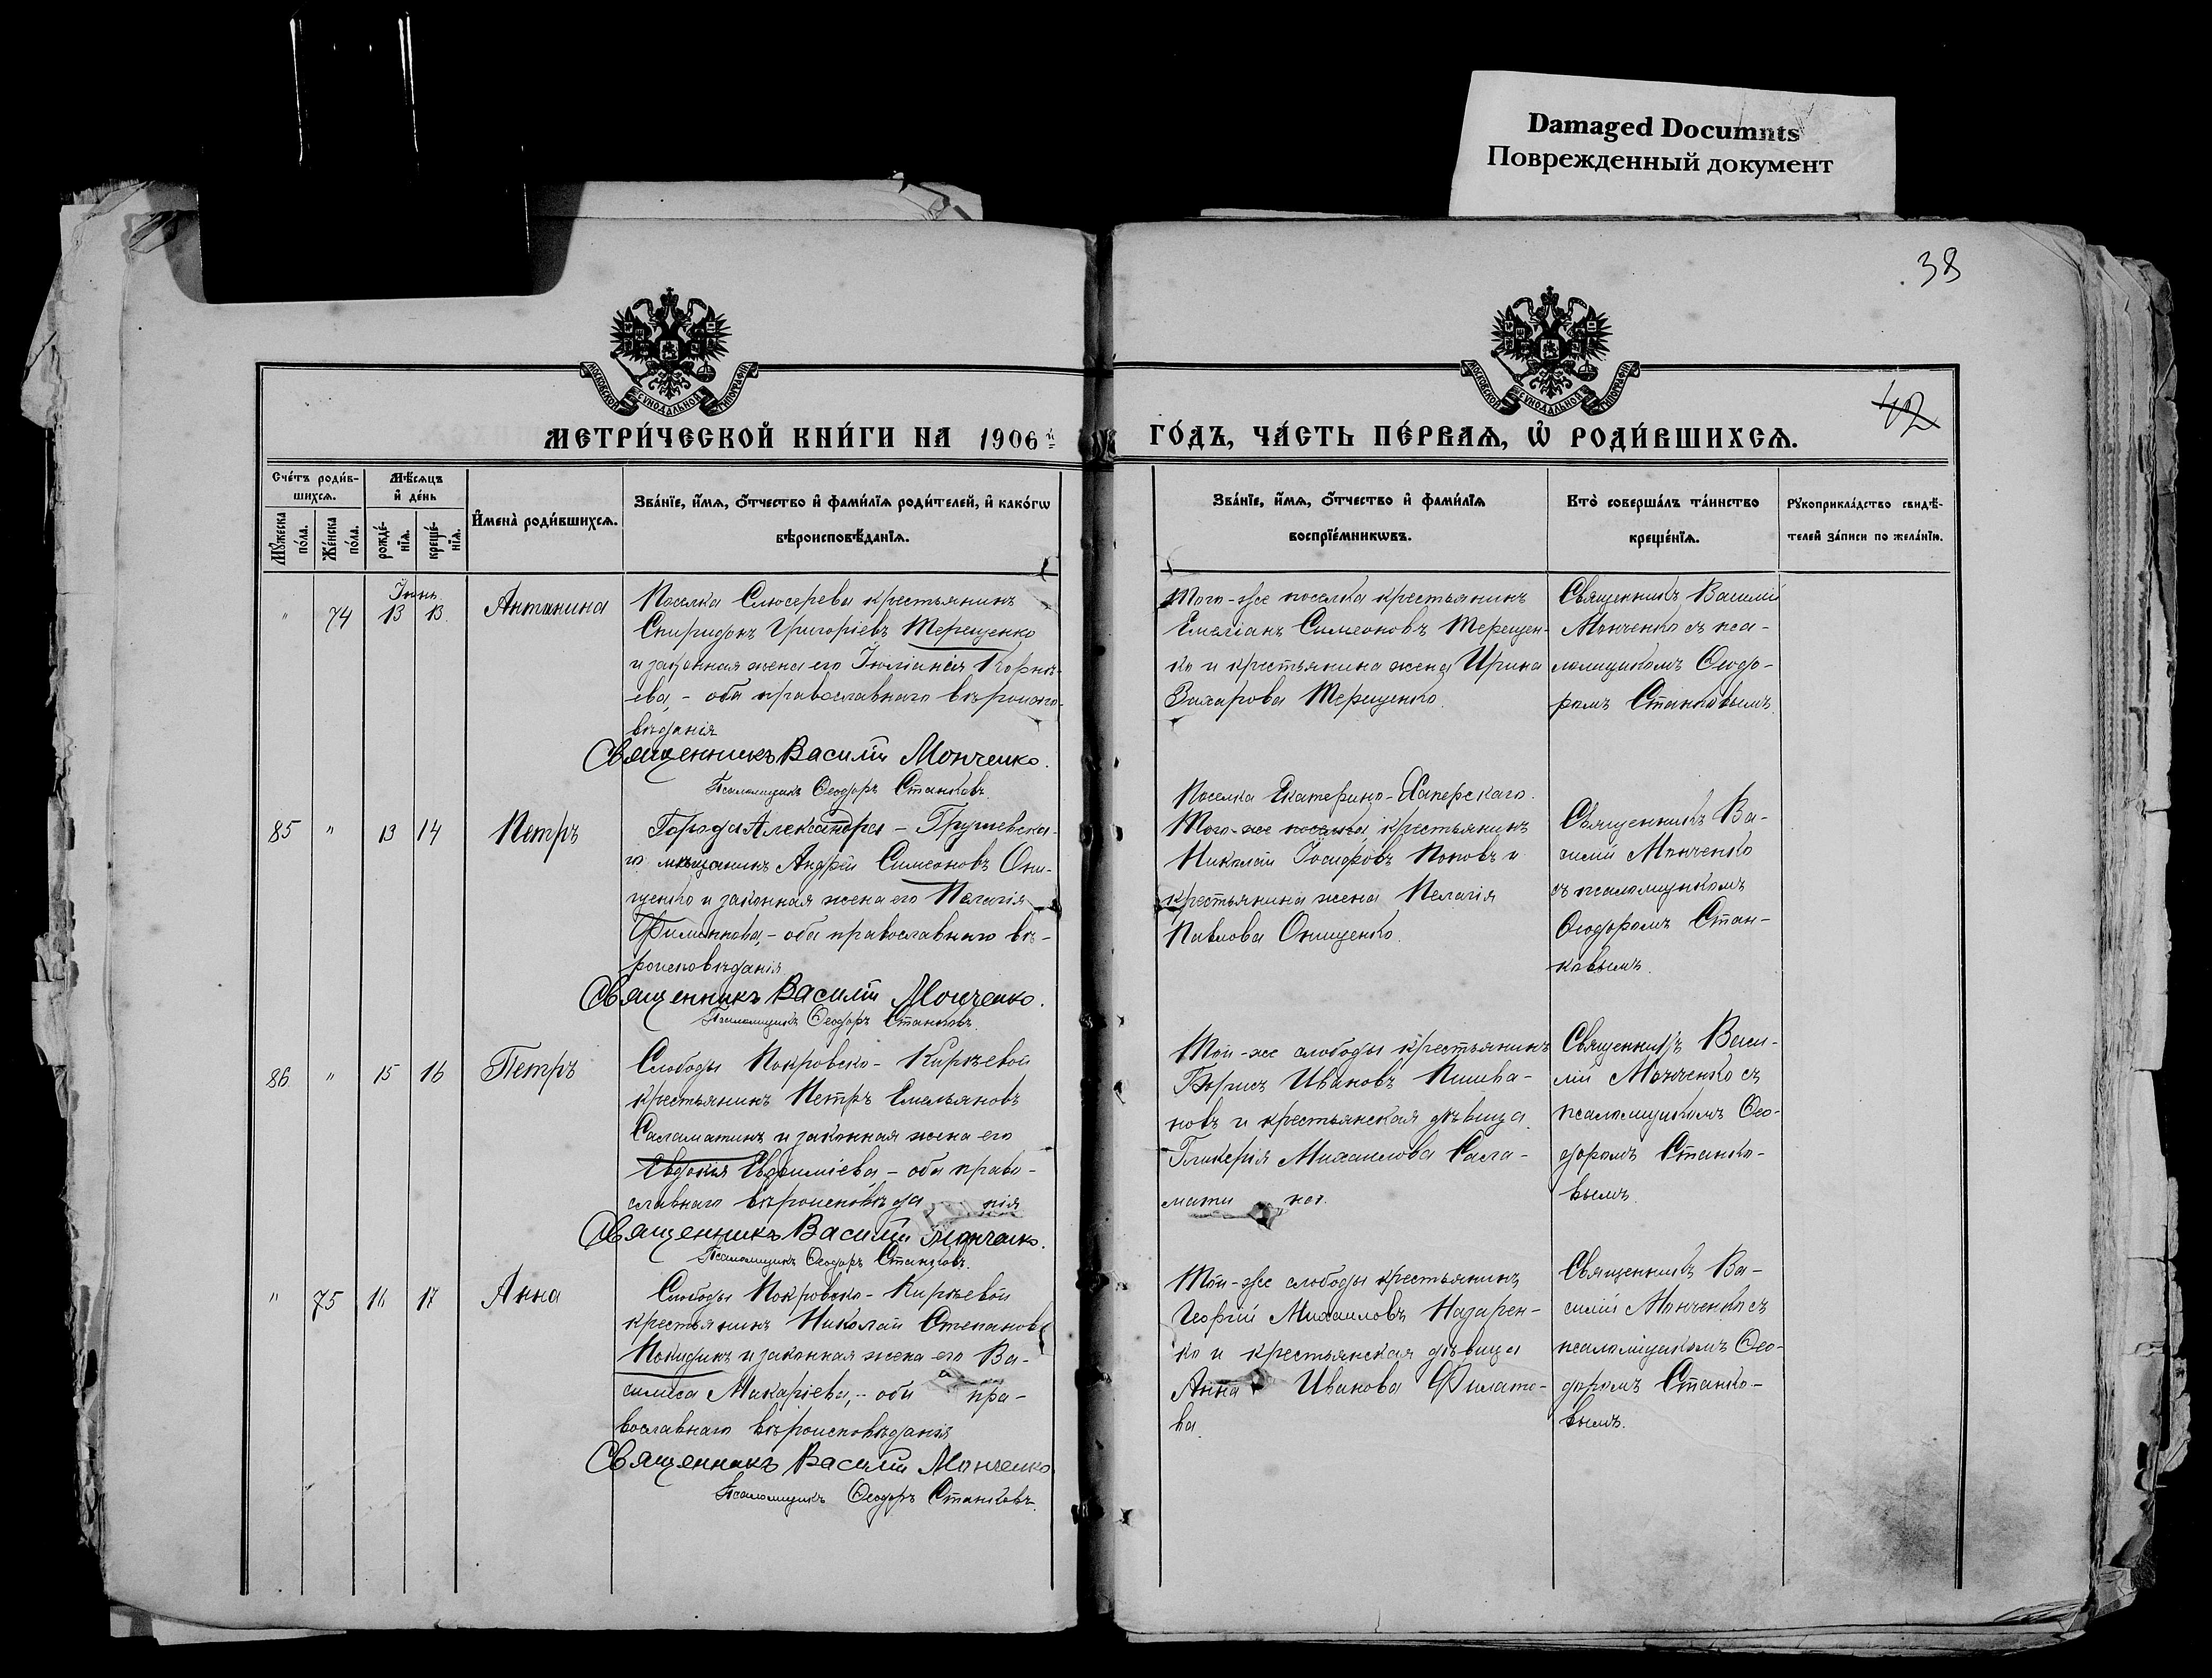 Damaged Documnts
Поврежденный документ
38
42
МОСКОВСКОЙ СУНОДАЛЬНОЙ ТИПОГРАФІИ
МОСКОВСКОЙ СУНОДАЛЬНОЙ ТИПОГРАФІИ
МЕТРИ́ЧЕСКОЙ КНИ́ГИ НА 1906 й
ГО́ДЪ, ЧА́СТЬ ПЕ́РВАѦ, Ѡ РОДИ́ВШИХСѦ.
Сче́тъ роди́в-
шихсѧ.
Мꙋ́жеска
по́ла.
Же́нска
по́ла.
Мѣ́сѧцъ
и де́нь
рожде́-
нїѧ.
креще́-
нїѧ.
Имена̀ роди́вшихсѧ.
Зва́нїе, и́мѧ, о́тчество и фами́лїѧ роди́телей, и како́гѡ
вѣроисповѣ́данїѧ.
Зва́нїе, и́мѧ, о́тчество и фами́лїѧ
воспрїе́мникѡвъ.
Кто̀ соверша́лъ та́инство
креще́нїѧ.
Рꙋкоприкла́дство свидѣ́-
телей за́писи по жела́нїю.
Іюнь
" 74 13 13 Антонина
Поселка Слюсерева крестьянинъ
Спиридонъ Григоріевъ Терещенко
и законная жена его Іюліанія Корнѣ-
ева, - оба православнаго вѣроиспо-
вѣданія
Священникъ Василій Монченко.
Псаломщикъ Ѳеодоръ Станковъ.
Того-же поселка крестьянинъ
Емеліанъ Симеоновъ Терещен-
ко и крестьянина жена Ирина
Захарова Терещенко.
Священникъ Василій
Монченко съ пса-
ломщикомъ Ѳеодо-
ромъ Станковымъ.
85 " 13 14 Петръ
Города Александра - Грушевска-
го мѣщанинъ Андрей Симеоновъ Они-
щенко и законная жена его Пелагія
Филиппова, - оба православнаго вѣ-
роисповѣданія
Священникъ Василій Монченко.
Псаломщикъ Ѳеодоръ Станковъ.
Поселка Екатерино-Хаперскаго
Того-же поселка крестьянинъ
Николай Іосифовъ Поповъ и
крестьянина жена Пелагія
Павлова Онищенко.
Священникъ Ва-
силій Монченко
съ псаломщикомъ
Ѳеодоромъ Стан-
ковымъ.
86 " 15 16 Петръ
Слободы Покровско-Кирѣевой
крестьянинъ Петръ Емельяновъ
Саламатинъ и законная жена его
Евдокія Евфиміева, - оба право-
славнаго вѣроисповѣданія
Священникъ Василій Монченко.
Псаломщикъ Ѳеодоръ Станковъ.
Той-же слободы крестьянинъ
Борисъ Ивановъ Пшива-
новъ и крестьянская дѣвица
Гликерія Михаилова Сала-
матина.
Священникъ Васи-
лій Монченко съ
псаломщикомъ Ѳео-
доромъ Станко-
вымъ.
" 75 16 17 Анна
Слободы Покровско-Кирѣевой
крестьянинъ Николай Степановъ
Покидинъ и законная жена его Ва-
силиса Макаріева, - оба пра-
вославнаго вѣроисповѣданія
Священникъ Василій Монченко
Псаломщикъ Ѳеодоръ Станковъ.
Той-же слободы крестьянинъ
Георгій Михаиловъ Назарен-
ко и крестьянская дѣвица
Анна Иванова Филато-
ва.
Священникъ Ва-
силій Монченко съ
псаломщикомъ Ѳео-
доромъ Станко-
вымъ.